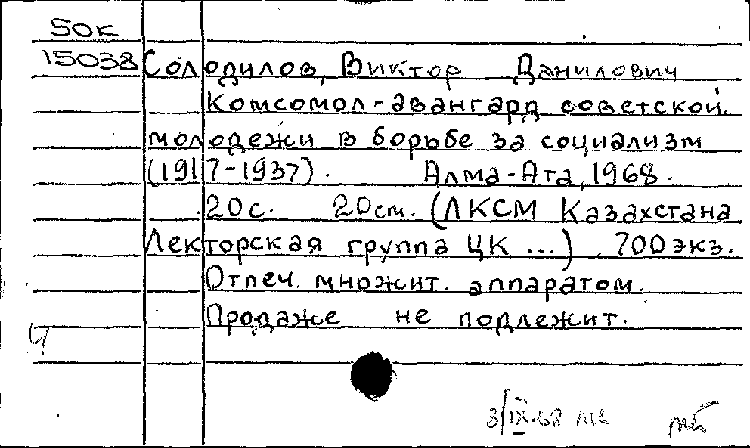 50к
15038 Солодилов, Виктор Данилович
Комсомол-авангард советской
молодежи в борьбе за социализм
(1917-1937). Алма-Ата, 1968.
20с. 20см. (ЛКСМ Казахстана
Лекторская группа ЦК ...) 700экз.
Отпеч. множит. аппаратом.
Продаже не подлежит.
3/IX-68